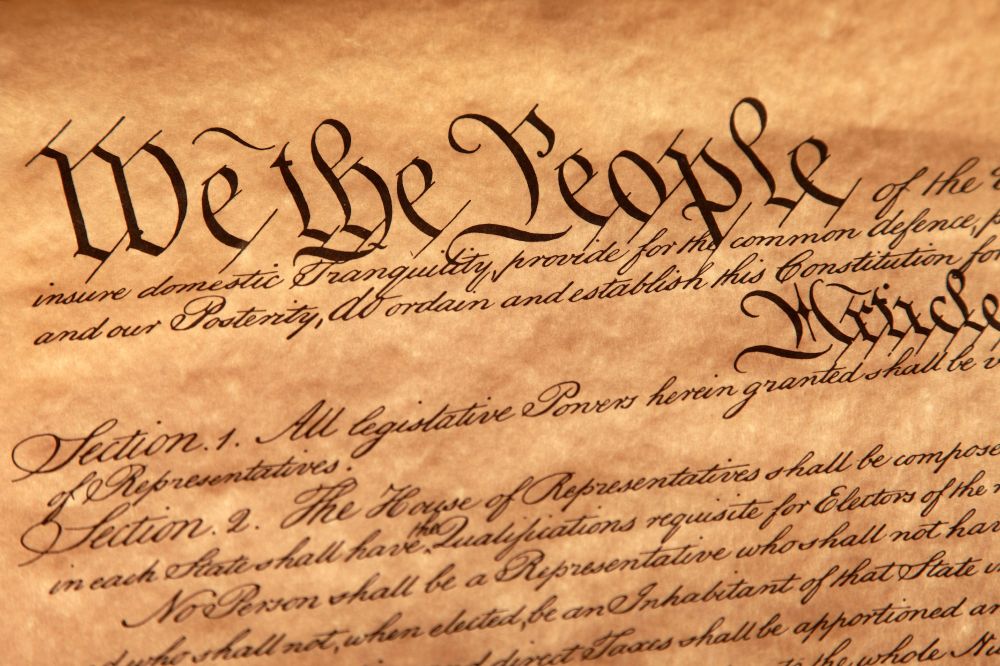 We the People of the
insure domestic Tranquility, provide for the common defence,
and our Posterity, do ordain and establish this Constitution for
Article
Section. 1. All legislative Powers herein granted shall be
of Representatives.
Section. 2. The House of Representatives shall be compose
in each State shall have the Qualifications requisite for Electors of the
No Person shall be a Representative who shall not hav
who shall not, when elected, be an Inhabitant of that State in
direct Taxes shall be apportioned
to the whole